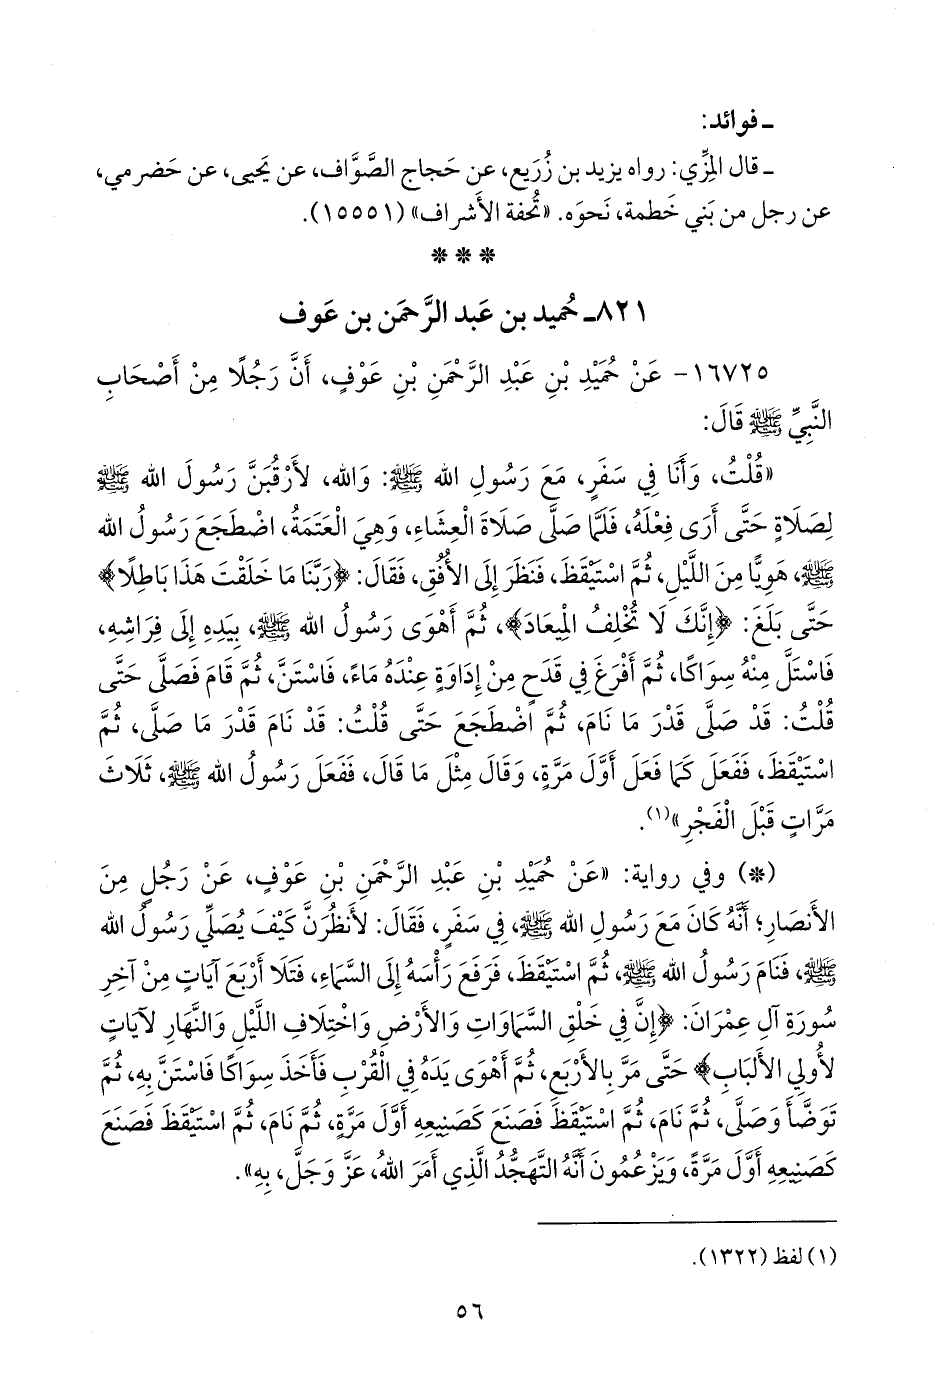 ـ فوائد:
ـ قال المِزِّي: رواه يزيد بن زُرَيع، عن حجاج الصَّوَّاف، عن يَحيى، عن حَضرمي،
عن رجل من بَني خَطمة، نَحوَه. «تُحفة الأَشراف» (١٥٥٥١).
* * *
٨٢١ـ حُميد بن عَبد الرَّحمَن بن عَوف
١٦٧٢٥- عَنْ حُمَيْدِ بْنِ عَبْدِ الرَّحْمَنِ بْنِ عَوْفٍ، أَنَّ رَجُلًا مِنْ أَصْحَابِ
النَّبِيِّ ﷺ قَالَ:
«قُلْتُ، وَأَنَا فِي سَفَرٍ، مَعَ رَسُولِ الله ﷺ: وَالله، لأَرْقُبَنَّ رَسُولَ الله ﷺ
لِصَلَاةٍ حَتَّى أَرَى فِعْلَهُ، فَلَمَّا صَلَّى صَلَاةَ الْعِشَاءِ، وَهِيَ الْعَتَمَةُ، اضْطَجَعَ رَسُولُ الله
ﷺ، هَوِيًّا مِنَ اللَّيْلِ، ثُمَّ اسْتَيْقَظَ، فَنَظَرَ إِلَى الأُفُقِ، فَقَالَ: ﴿رَبَّنَا مَا خَلَقْتَ هَذَا بَاطِلًا﴾
حَتَّى بَلَغَ: ﴿إِنَّكَ لَا تُخْلِفُ الْمِيعَادَ﴾، ثُمَّ أَهْوَى رَسُولُ الله ﷺ، بِيَدِهِ إِلَى فِرَاشِهِ،
فَاسْتَلَّ مِنْهُ سِوَاكًا، ثُمَّ أَفْرَغَ فِي قَدَحٍ مِنْ إِدَاوَةٍ عِنْدَهُ مَاءً، فَاسْتَنَّ، ثُمَّ قَامَ فَصَلَّى حَتَّى
قُلْتُ: قَدْ صَلَّى قَدْرَ مَا نَامَ، ثُمَّ اضْطَجَعَ حَتَّى قُلْتُ: قَدْ نَامَ قَدْرَ مَا صَلَّى، ثُمَّ
اسْتَيْقَظَ، فَفَعَلَ كَمَا فَعَلَ أَوَّلَ مَرَّةٍ، وَقَالَ مِثْلَ مَا قَالَ، فَفَعَلَ رَسُولُ الله ﷺ، ثَلَاثَ
مَرَّاتٍ قَبْلَ الْفَجْرِ»(١).
(*) وفي رواية: «عَنْ حُمَيْدِ بْنِ عَبْدِ الرَّحْمَنِ بْنِ عَوْفٍ، عَنْ رَجُلٍ مِنَ
الأَنصَارِ؛ أَنَّهُ كَانَ مَعَ رَسُولِ الله ﷺ، فِي سَفَرٍ، فَقَالَ: لأَنظُرَنَّ كَيْفَ يُصَلِّي رَسُولُ الله
ﷺ، فَنَامَ رَسُولُ الله ﷺ، ثُمَّ اسْتَيْقَظَ، فَرَفَعَ رَأْسَهُ إِلَى السَّمَاءِ، فَتَلَا أَرْبَعَ آيَاتٍ مِنْ آخِرِ
سُورَةِ آلِ عِمْرَانَ: ﴿إِنَّ فِي خَلْقِ السَّمَاوَاتِ وَالأَرْضِ وَاخْتِلَافِ اللَّيْلِ وَالنَّهَارِ لآيَاتٍ
لأُولِي الأَلْبَابِ﴾ حَتَّى مَرَّ بِالأَرْبَعِ، ثُمَّ أَهْوَى يَدَهُ فِي الْقُرْبِ فَأَخَذَ سِوَاكًا فَاسْتَنَّ بِهِ، ثُمَّ
تَوَضَّأَ وَصَلَّى، ثُمَّ نَامَ، ثُمَّ اسْتَيْقَظَ فَصَنَعَ كَصَنِيعِهِ أَوَّلَ مَرَّةٍ، ثُمَّ نَامَ، ثُمَّ اسْتَيْقَظَ فَصَنَعَ
كَصَنِيعِهِ أَوَّلَ مَرَّةً، وَيَزْعُمُونَ أَنَّهُ التَّهَجُّدُ الَّذِي أَمَرَ اللهُ، عَزَّ وَجَلَّ، بِهِ».
(١) لفظ (١٣٢٢).
٥٦